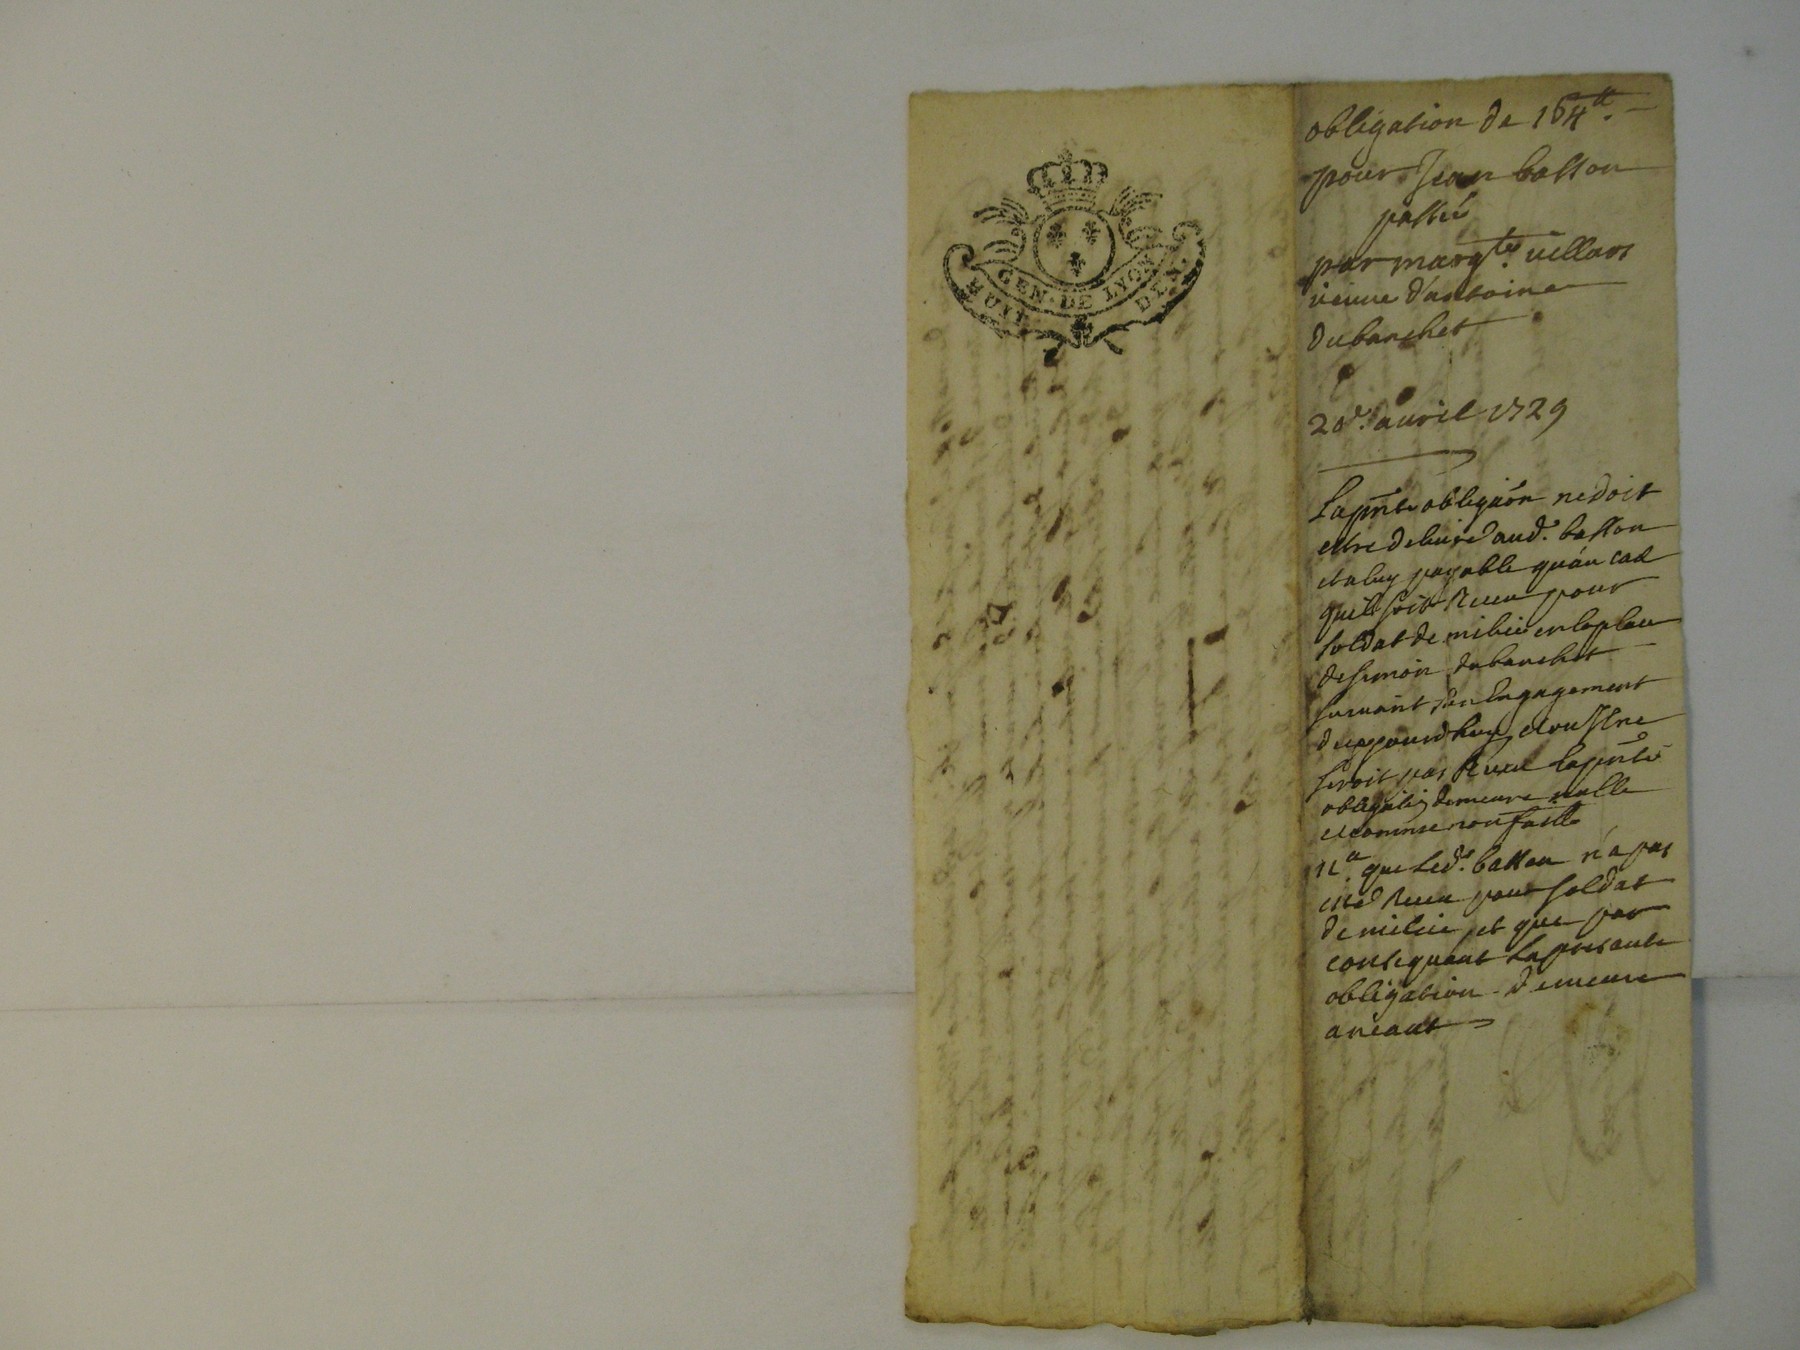 GEN. DE LYON
HUIT DEN.
obligation de 164ᵗᵗ.
pour Jean basson
passée
par margᵗᵉ. villars
veuve d'antoine
dubanchet
20ᵉ. avril 1729
La pnte obligãon ne doit
estre delivré aud. basson
et a luy payable qu'au cas
quil soit Receu pour
soldat de milice en la place
de simon dubanchet
suivant son Engagement
du jourdhuy et ou Il ne
seroit pas Receu la pnte
obligãon demeure nulle
et comme non faitte
Nᵃ. que Led. basson n'a pas
esté Receu pour soldat
de milice et que par
consequant La presante
obligation demeure
a neant